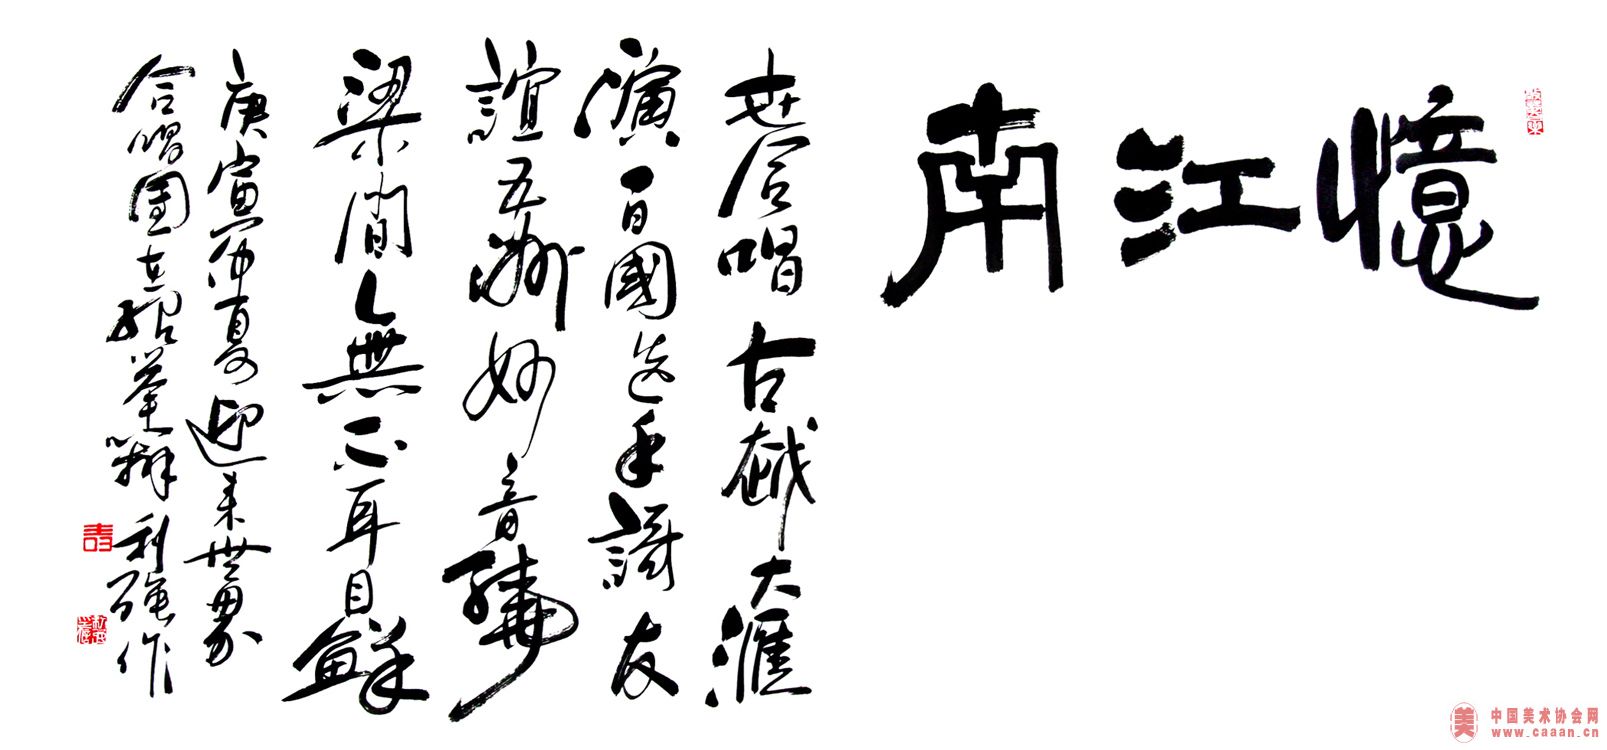 憶江南
世合唱古越大滙
演百國选手謌友
誼五洲妙音繞
梁間無不耳目鮮
庚寅仲夏迎来世界
合唱團在紹举辦利強作
美
中国美术协会网
www.caaan.cn